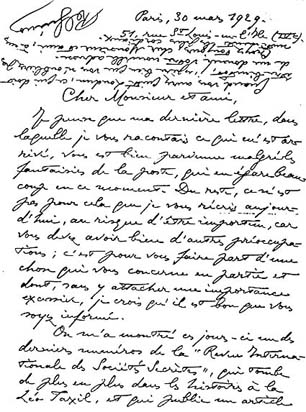 Paris, 30 mars 1929.
51, rue St Louis-en l'Ile (IVe)
Cher Monsieur et ami,
Je pense que ma dernière lettre, dans
laquelle je vous racontais ce qui m'est ar-
rivé, vous est bien parvenue malgré les
fantaisies de la poste, qui en égare beau-
coup en ce moment. Du reste, ce n'est
pas pour cela que je vous récris aujour-
d'hui, au risque d'être importun, car
vous devez avoir bien d'autres préoccupa-
tions ; c'est pour vous faire part d'une
chose qui vous concerne en partie et
dont, sans y attacher une importance
excessive, je crois qu'il est bon que vous
soyez informé.
On m'a montré ces jours-ci un des
derniers numéros de la "Revue Interna-
tionale des Sociétés Secrètes", qui tombe
de plus en plus dans les histoires à la
Léo Taxil, et qui publie un article